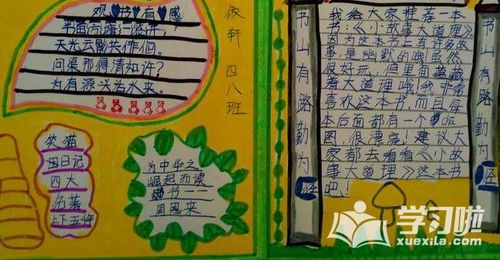 观书有感
天光云影共作徊。
问渠那得清如许?
为有源头活水来。
依轩
四八班
笑猫
日记
四大
名著
上下五千
为中华之
崛起而梁
书一一
周恩来
书山有路勤为
我给大家推荐一本
书:《小故事大道理》
因为这本书上有许多故
事,是幽默的哦虽然
很好玩,但里面蕴藏
着大道理哦我非常
喜欢这本书,而且每
本后面都有一个
图很漂亮!建议大
家都去看看《小故
事大道理》这本书
吧!
书山有路勤为
学习啦
xuexila.com